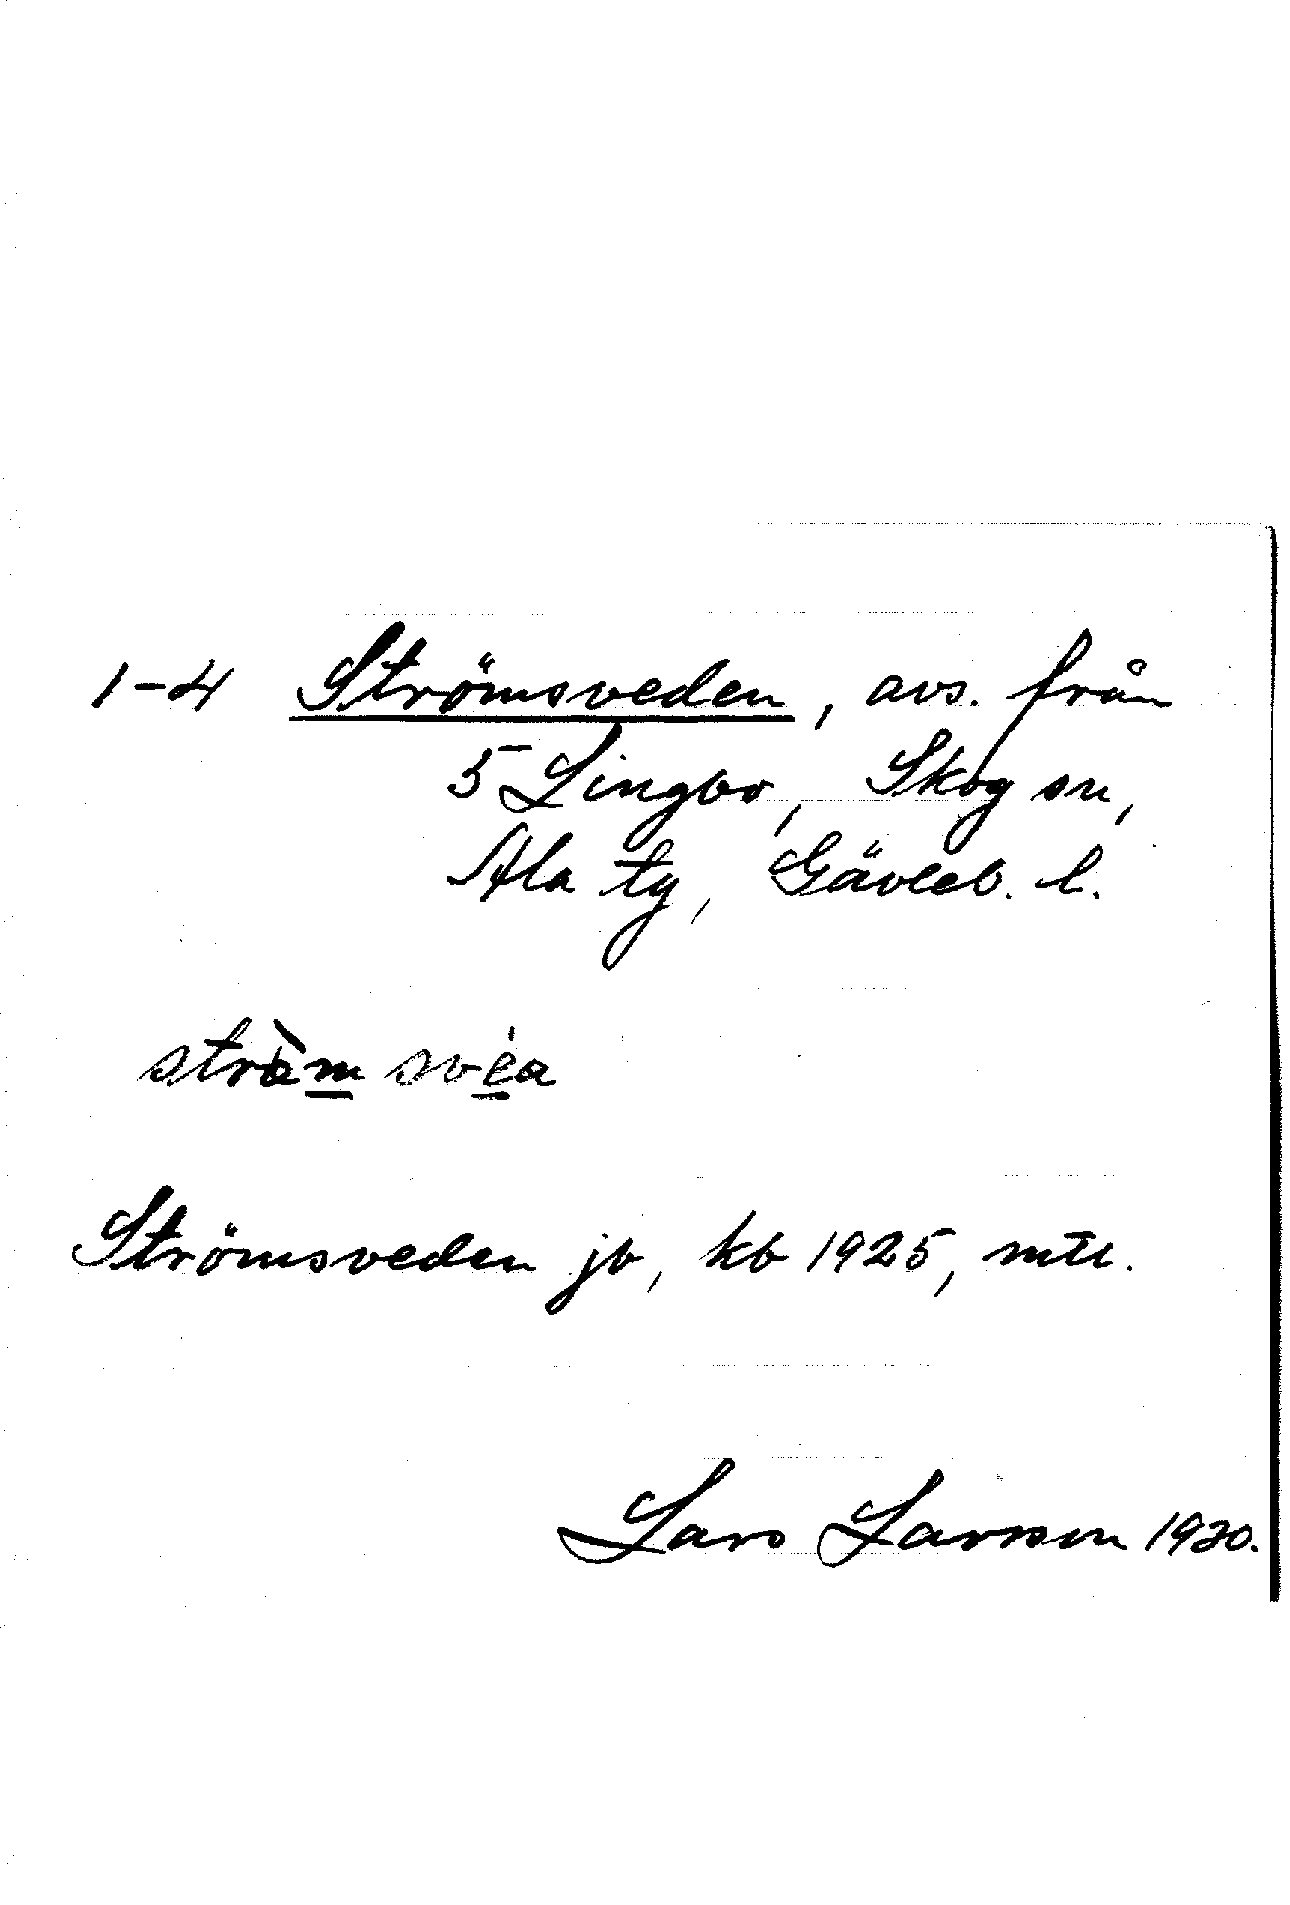 1-4 Strömsveden, avs. från
5 Lingbo, Skog sn,
Ala tg, Gävleb. l.
Strömsveden jb, kb 1925, mtl.
Lars Larsson 1930.